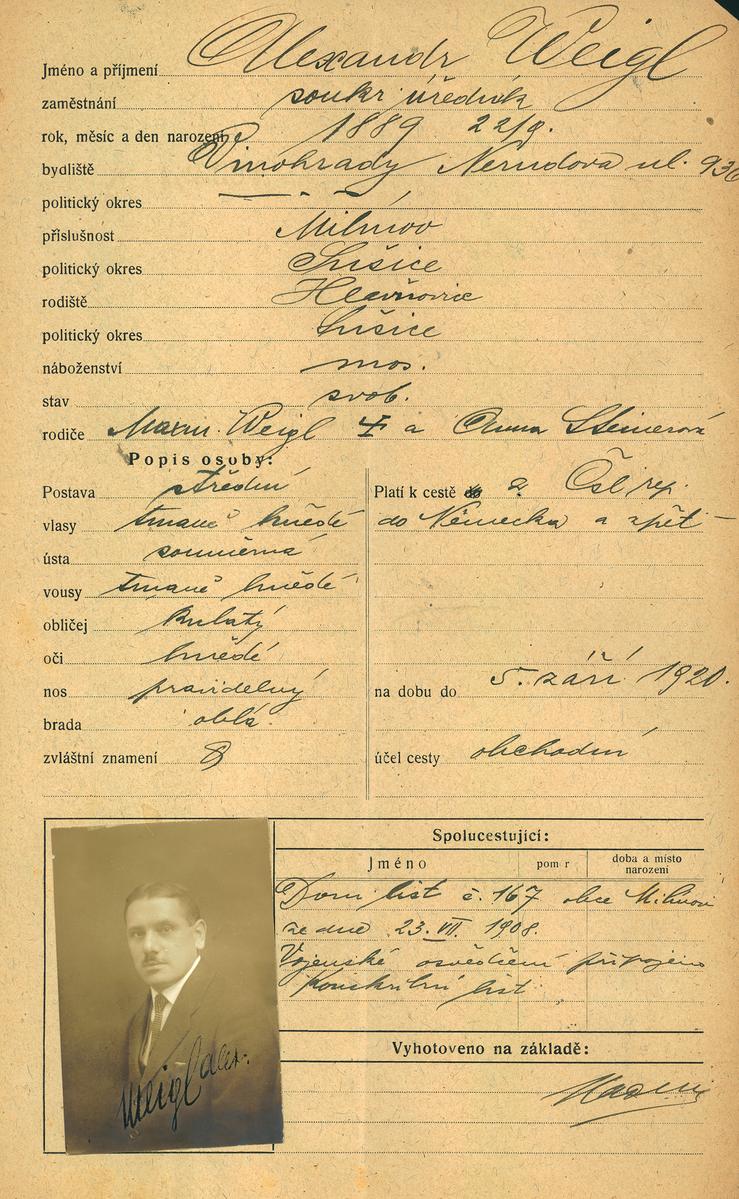 Jméno a příjmení Alexandr Weigl
zaměstnání soukr. úředník
rok, měsíc a den narození 1889 22/9.
bydliště Vinohrady Nerudova ul. 936
politický okres
příslušnost Milínov
politický okres Sušice
rodiště Hlavňovice
politický okres Sušice
náboženství mos.
stav svob.
rodiče Maxm. Weigl a Anna Steinerová
Popis osoby:
Postava střední
vlasy tmavě hnědé
ústa souměrná
vousy tmavě hnědé
obličej kulatý
oči hnědé
nos pravidelný
brada oblá
zvláštní znamení
Platí k cestě Čsl. rep.
do Německa a zpět
na dobu do 5. září 1920.
účel cesty obchodní
Spolucestující:
Jméno pom r doba a místo
narození
Dom. list č. 167 obce Milínov
ze dne 23. VII. 1908.
Vojenské osvědčení připojeno
Konskribní list
Vyhotoveno na základě:
Weigl Alex.